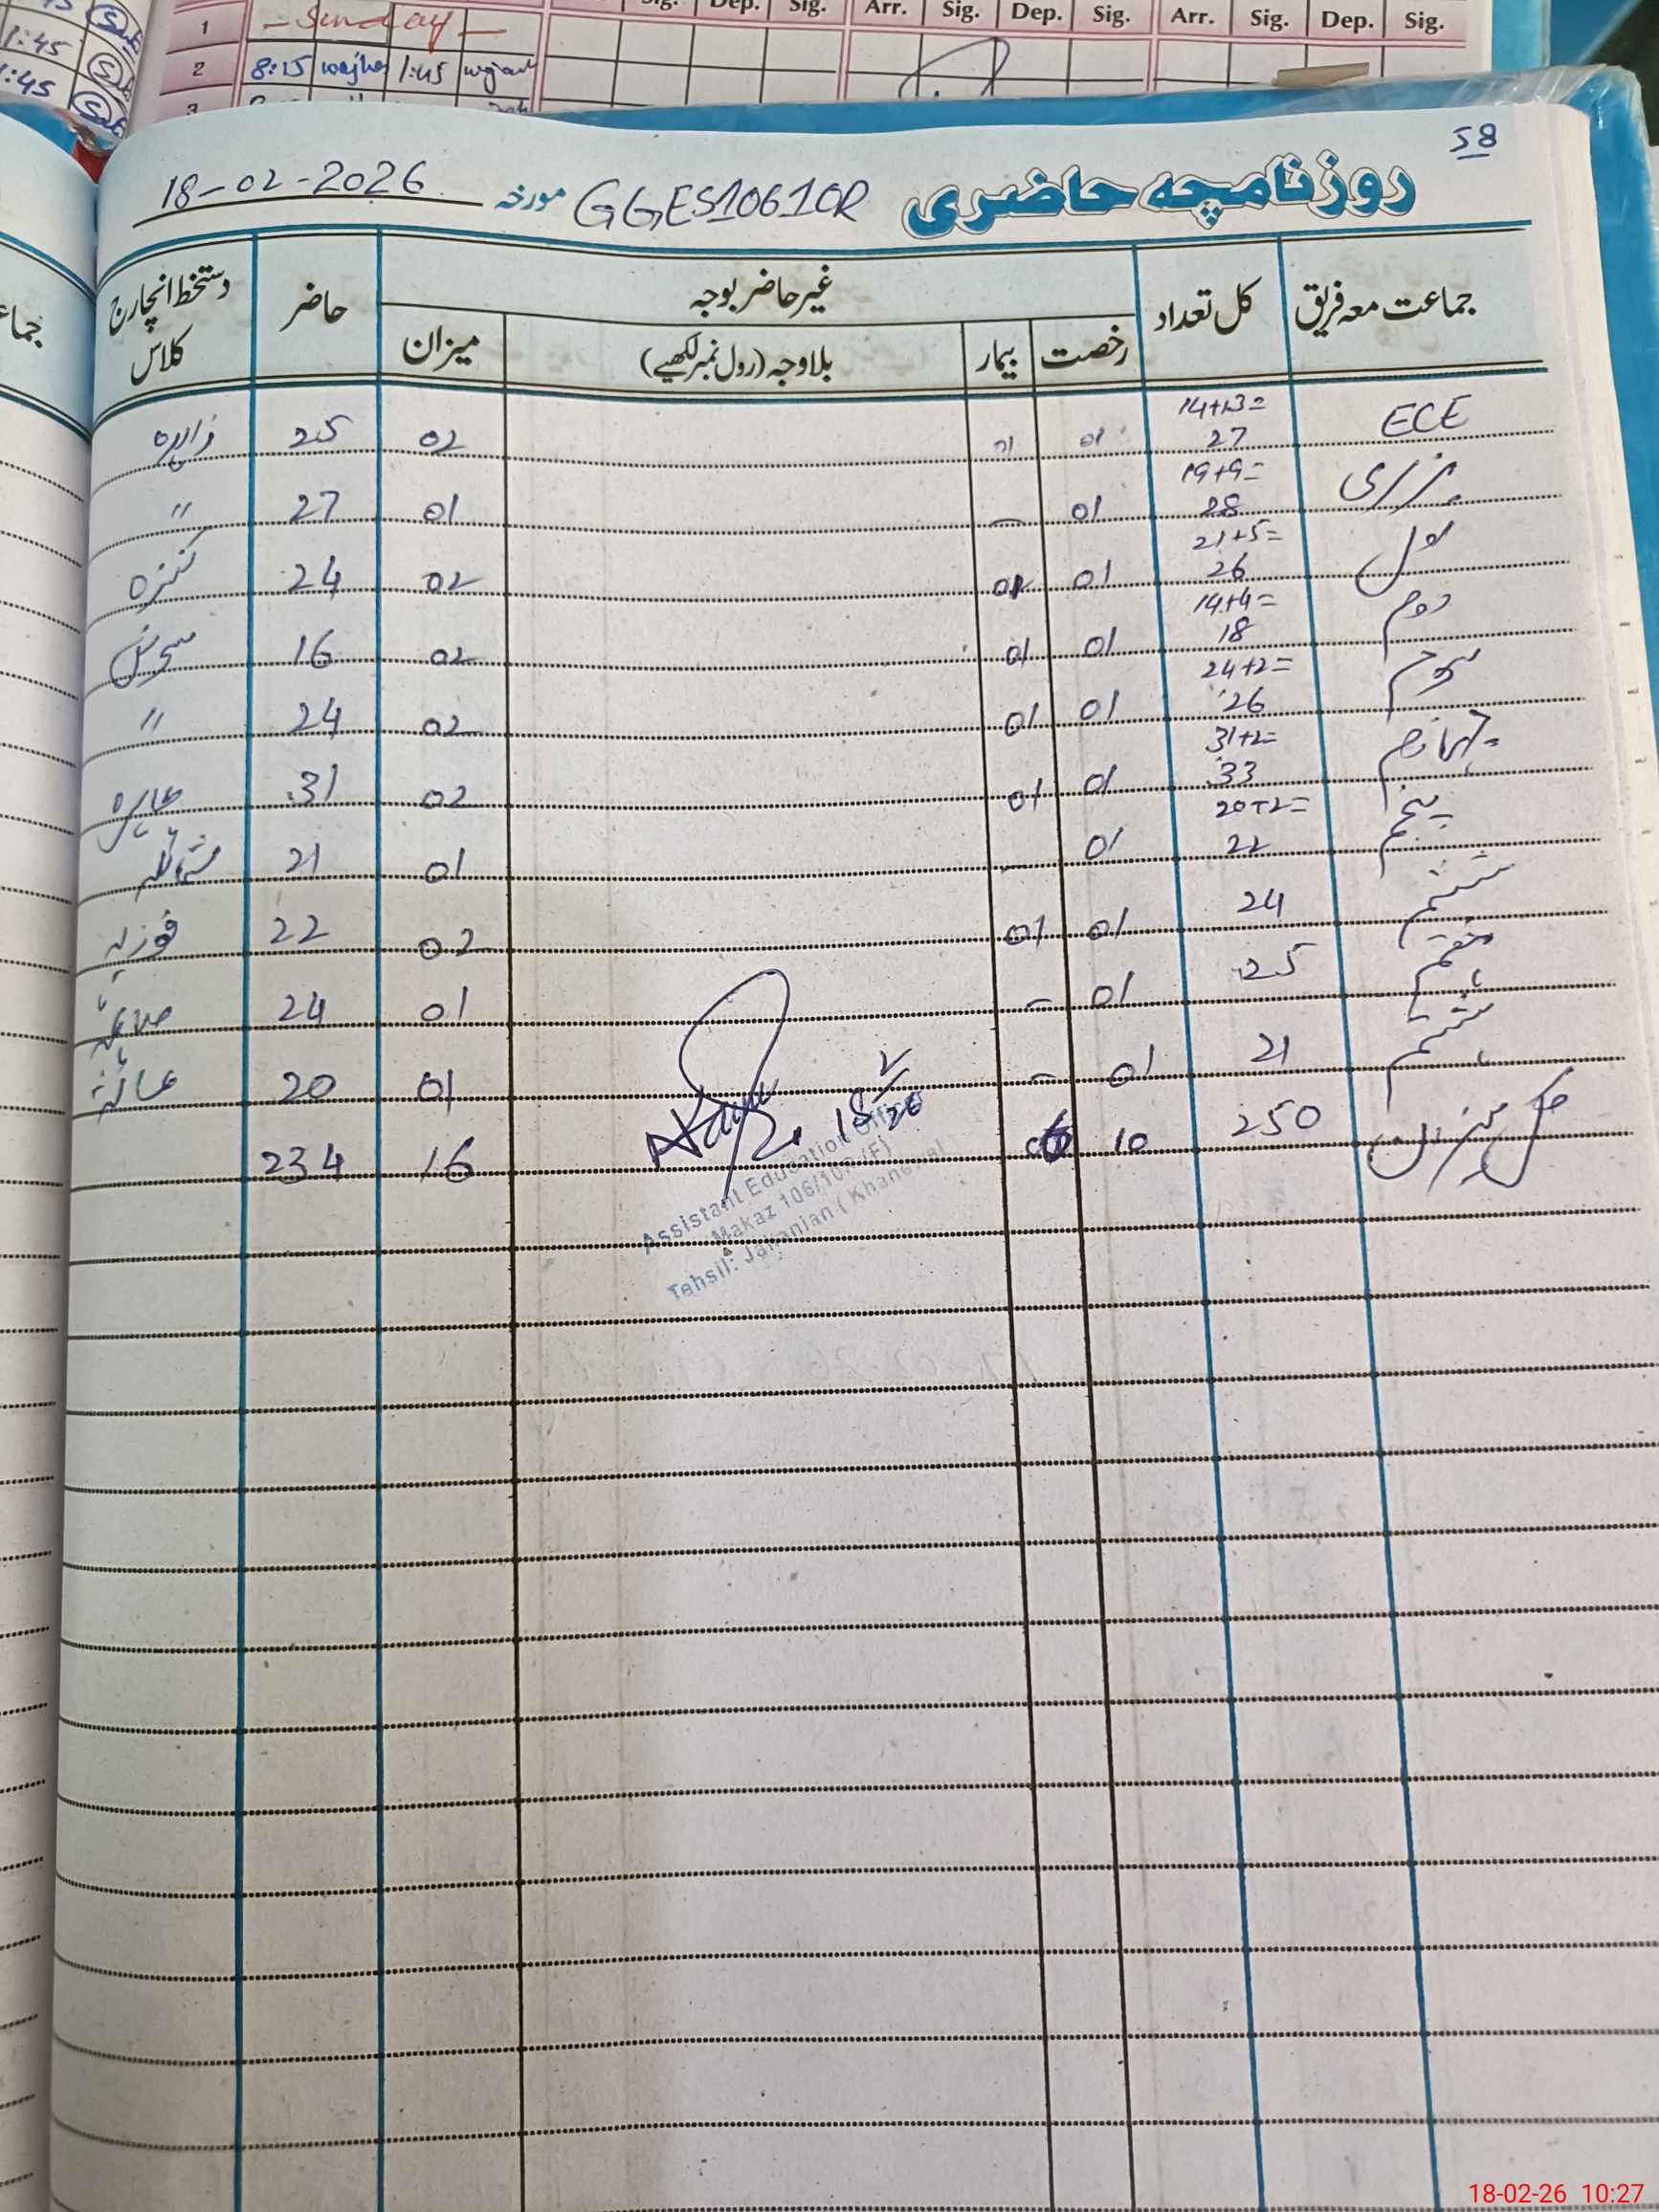 1 - Sunday -
Sig. Dep. Sig. Arr. Sig. Dep. Sig. Arr. Sig. Dep. Sig.
1:45
2 8:15 1:45
1:45
3
58
روزنامچہ حاضری GGES 106 10R مورخہ 18-02-2026
جماعت معہ فریق کل تعداد غیر حاضر بوجہ حاضر دستخط انچارج کلاس
رخصت بیمار بلاوجہ (رول نمبر لکھیے) میزان
14+13=
ECE 27 01 01 02 25 زاہدہ
19+9=
نرسری 28 01 – 01 27 "
21+5=
اول 26 01 01 02 24 کنزہ
14+4=
دوم 18 01 01 02 16 سحرش
24+2=
سوم 26 01 01 02 24 "
31+2=
چہارم 33 01 01 02 31
20+2=
پنجم 22 01 – 01 21 شمائلہ
ششم 24 01 01 02 22 فوزیہ
ہفتم 25 01 – 01 24 صائمہ
ہشتم 21 01 – 01 20
کل میزان 250 10 06 16 234
18/2/26
Assistant Education Officer
Makaz 106/10R (F)
Tehsil: Jahanian (Khanewal)
جماعت
18-02-26 10:27